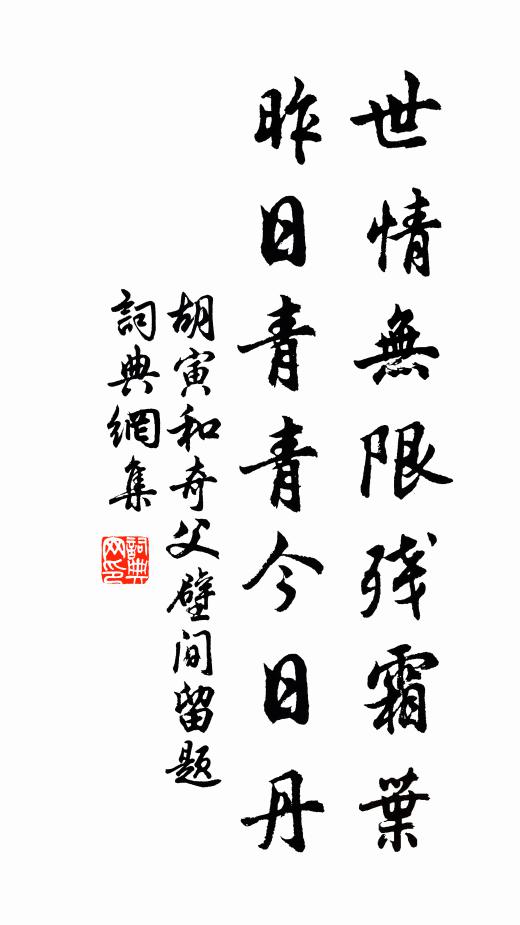 世情無限残霜葉
昨日青青今日丹
胡寅和奇父壁间留题
詞典網集
詞典网印